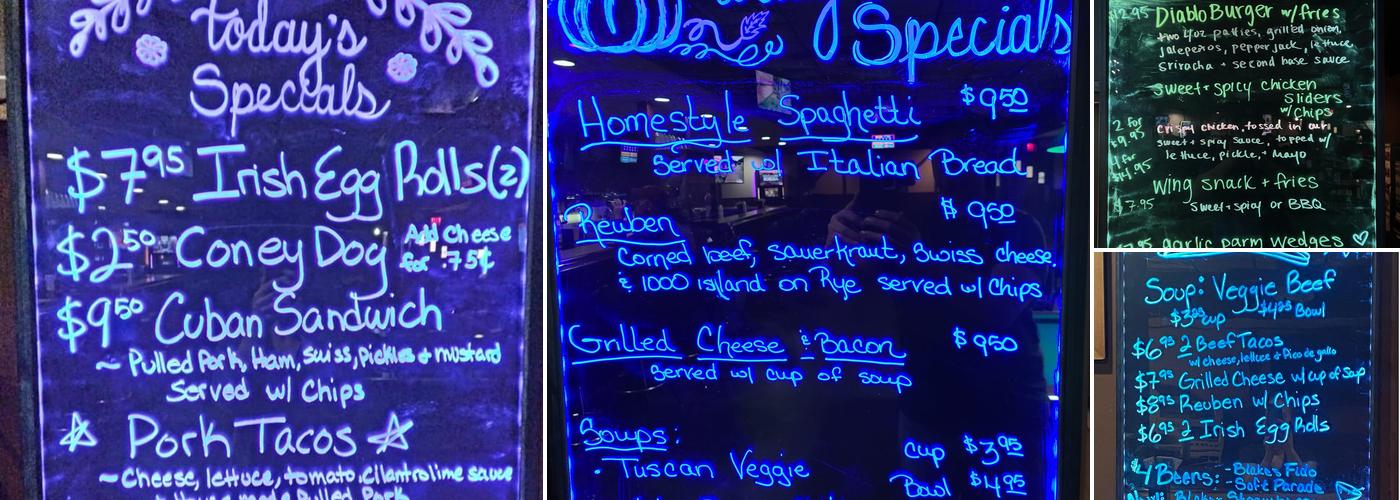 today's
Specials
$7.95 Irish Egg Rolls(2)
$2.50 Coney Dog Add Cheese
for .75¢
$9.50 Cuban Sandwich
~ Pulled Pork, Ham, Swiss, Pickles + mustard
Served w/ Chips
☆ Pork Tacos ☆
~ Cheese, lettuce, tomato, cilantro lime sauce
Pulled Pork
Specials
Homestyle Spaghetti $9.50
Served w/ Italian Bread
Reuben $9.50
Corned beef, sauerkraut, Swiss cheese
& 1000 island on Rye served w/ Chips
Grilled Cheese & Bacon $9.50
Served w/ cup of soup
Soups: cup $3.95
• Tuscan Veggie Bowl $4.95
Diablo Burger w/ fries
two 4oz patties, grilled onion,
Jalepeños, pepper jack, lettuce
Sriracha + second base sauce
sweet + spicy chicken
Sliders
w/ Chips
2 for
$9.95
crispy chicken, tossed in our
sweet + spicy sauce, topped w/
lettuce, pickle, + Mayo
wing snack + fries
$7.95 Sweet + spicy or BBQ
garlic parm wedges ♡
Soup: Veggie Beef
$3.95 cup $4.95 Bowl
$6.95 2 Beef Tacos
w/ cheese, lettuce + Pico de gallo
$7.95 Grilled Cheese w/ cup of Soup
$8.95 Reuben w/ Chips
$6.95 2 Irish Egg Rolls
$4 Beers: - Blakes Fido
- Soft Parade